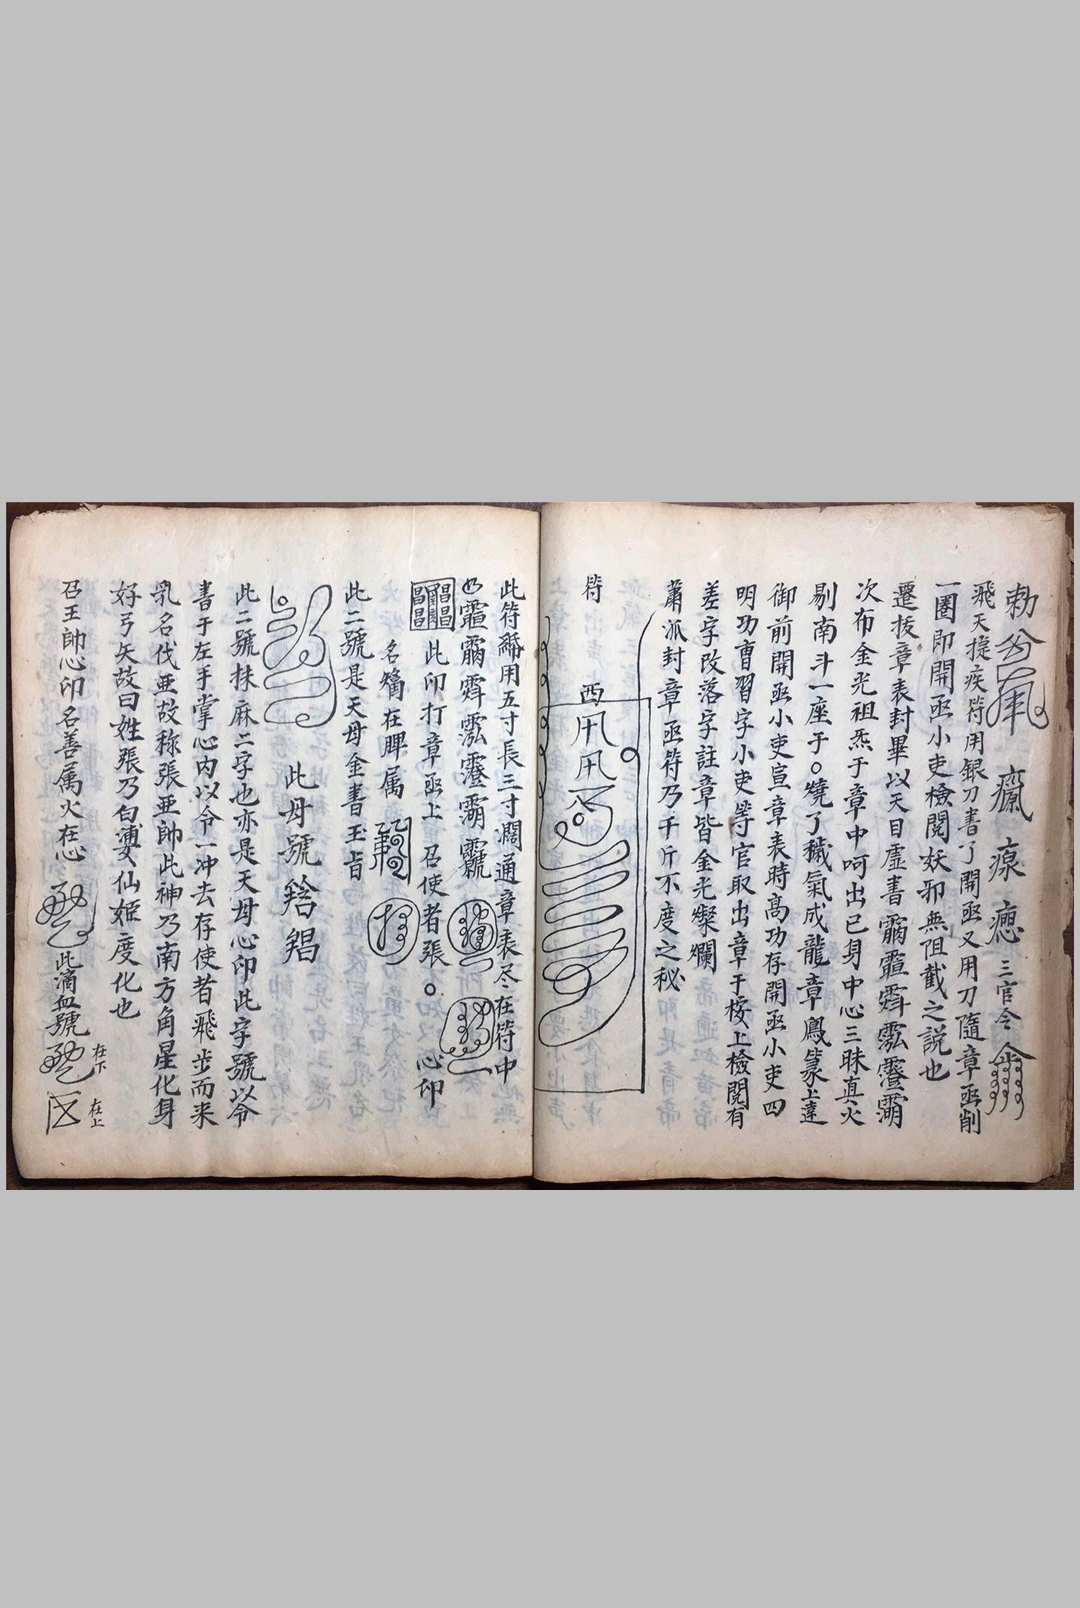 勅 三官令
飛天捷疾符用銀刀書了開函又用刀隨章函削
一圈即開函小吏檢閱妖邪無阻截之說也
遷拔章表封畢以天目虛書
次布金光祖炁于章中呵出己身中心三昧真火
剔南斗一座于○燒了穢氣成龍章鳳篆上達
御前開函小吏宣章表時高功存開函小吏四
明功曹習字小吏等官取出章于桉上檢閱有
差字改落字註章皆金光燦爛
蕭派封章函符乃千斤不度之秘
符 西
此符用五寸長三寸闊通章表尽在符中
此印打章函上 召使者張○心印
名 在脾属
此二號是天母金書玉旨
此母號
此二號抹麻二字也亦是天母心印此字號以令
書于左手掌心內以令一冲去存使者飛步而来
乳名伐亜故称張亜帥此神乃南方角星化身
好弓矢故曰姓張乃白 仙姬度化也
召王帥心印名善属火在心 此滴血號 在下 在上